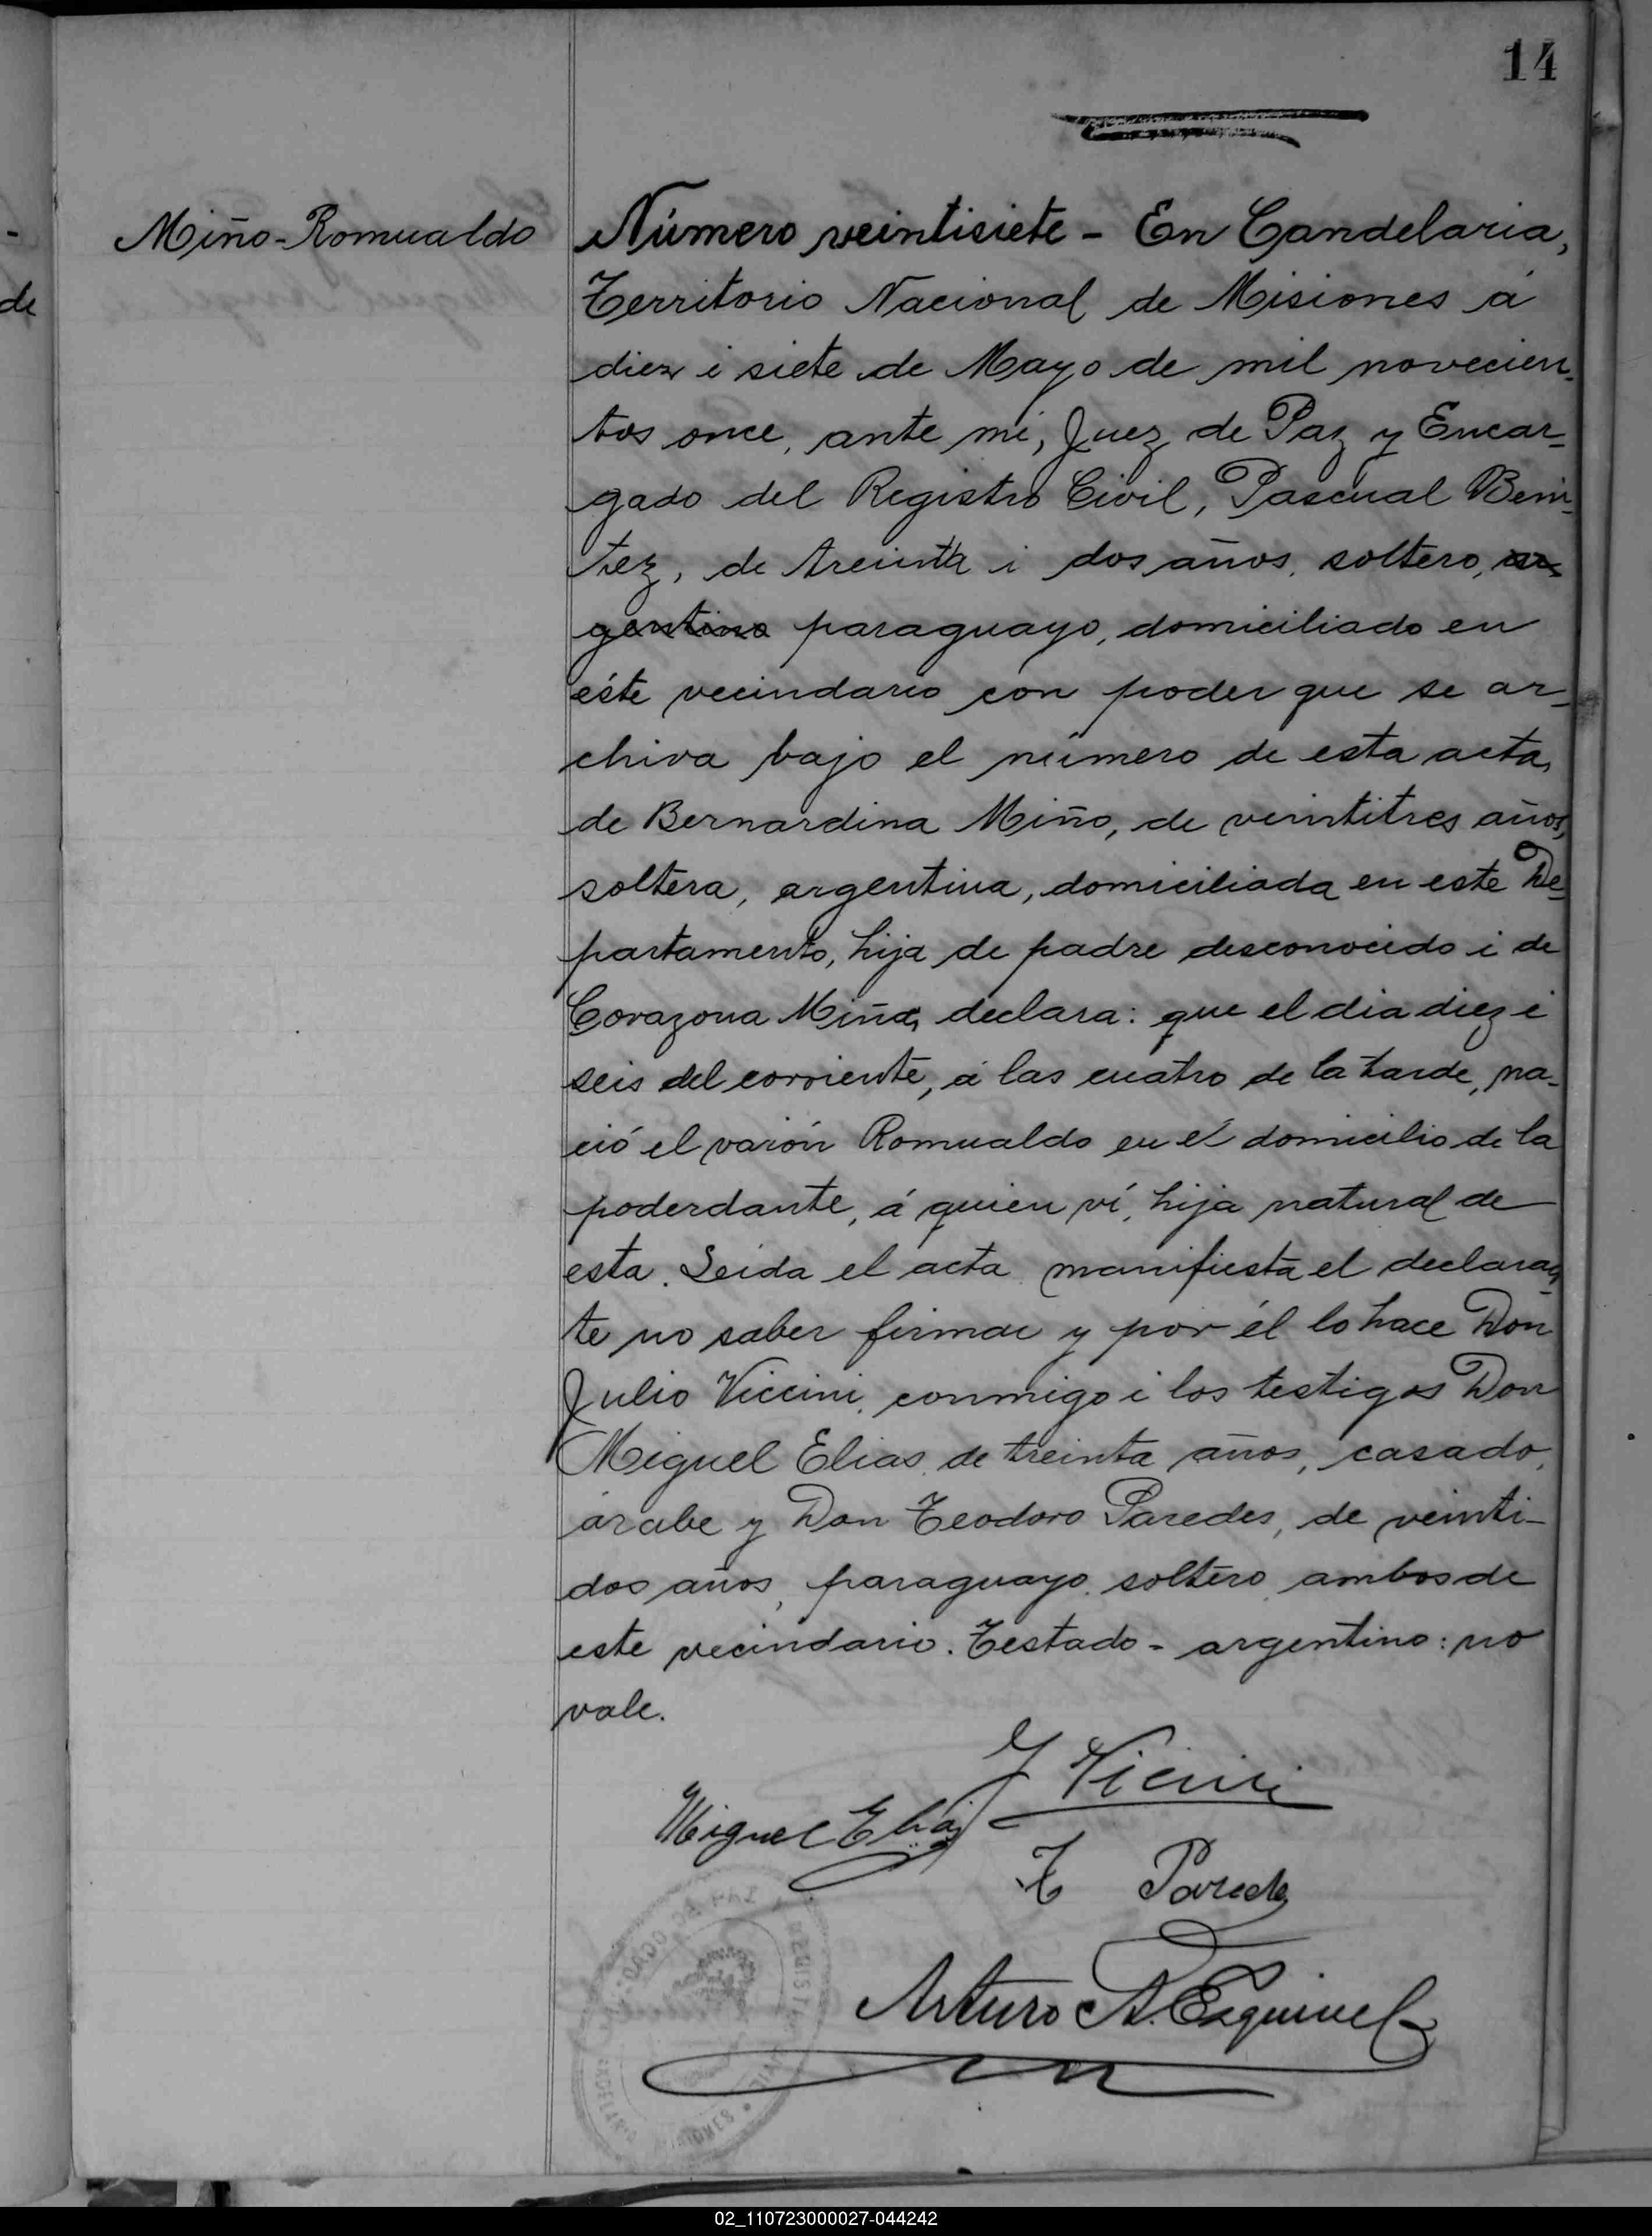 14
Miño-Romualdo
de
Número veintisiete - En Candelaria,
Territorio Nacional de Misiones á
diez i siete de Mayo de mil novecien-
tos once, ante mi, Juez de Paz y Encar-
gado del Registro Civil, Pascual Beni-
tez, de treinta i dos años, soltero, ar
gentino paraguayo, domiciliado en
éste vecindario con poder que se ar-
chiva bajo el número de esta acta,
de Bernardina Miño, de veintitres años,
soltera, argentina, domiciliada en este De-
partamento, hija de padre desconocido i de
Corazona Miño, declara: que el dia diez i
seis del corriente, á las cuatro de la tarde, na-
ció el varón Romualdo en el domicilio de la
poderdante, á quien ví, hija natural de
esta. Leida el acta manifiesta el declaran-
te no saber firmar y por él lo hace Don
Julio Viccini, conmigo i los testigos Don
Miguel Elias de treinta años, casado,
árabe y Don Teodoro Paredes, de veinti-
dos años, paraguayo, soltero, ambos de
este vecindario. Testado - argentino: no
vale.
J Vicini
Miguel Elias
T Paredes
Arturo A. Esquivel
02_110723000027-044242